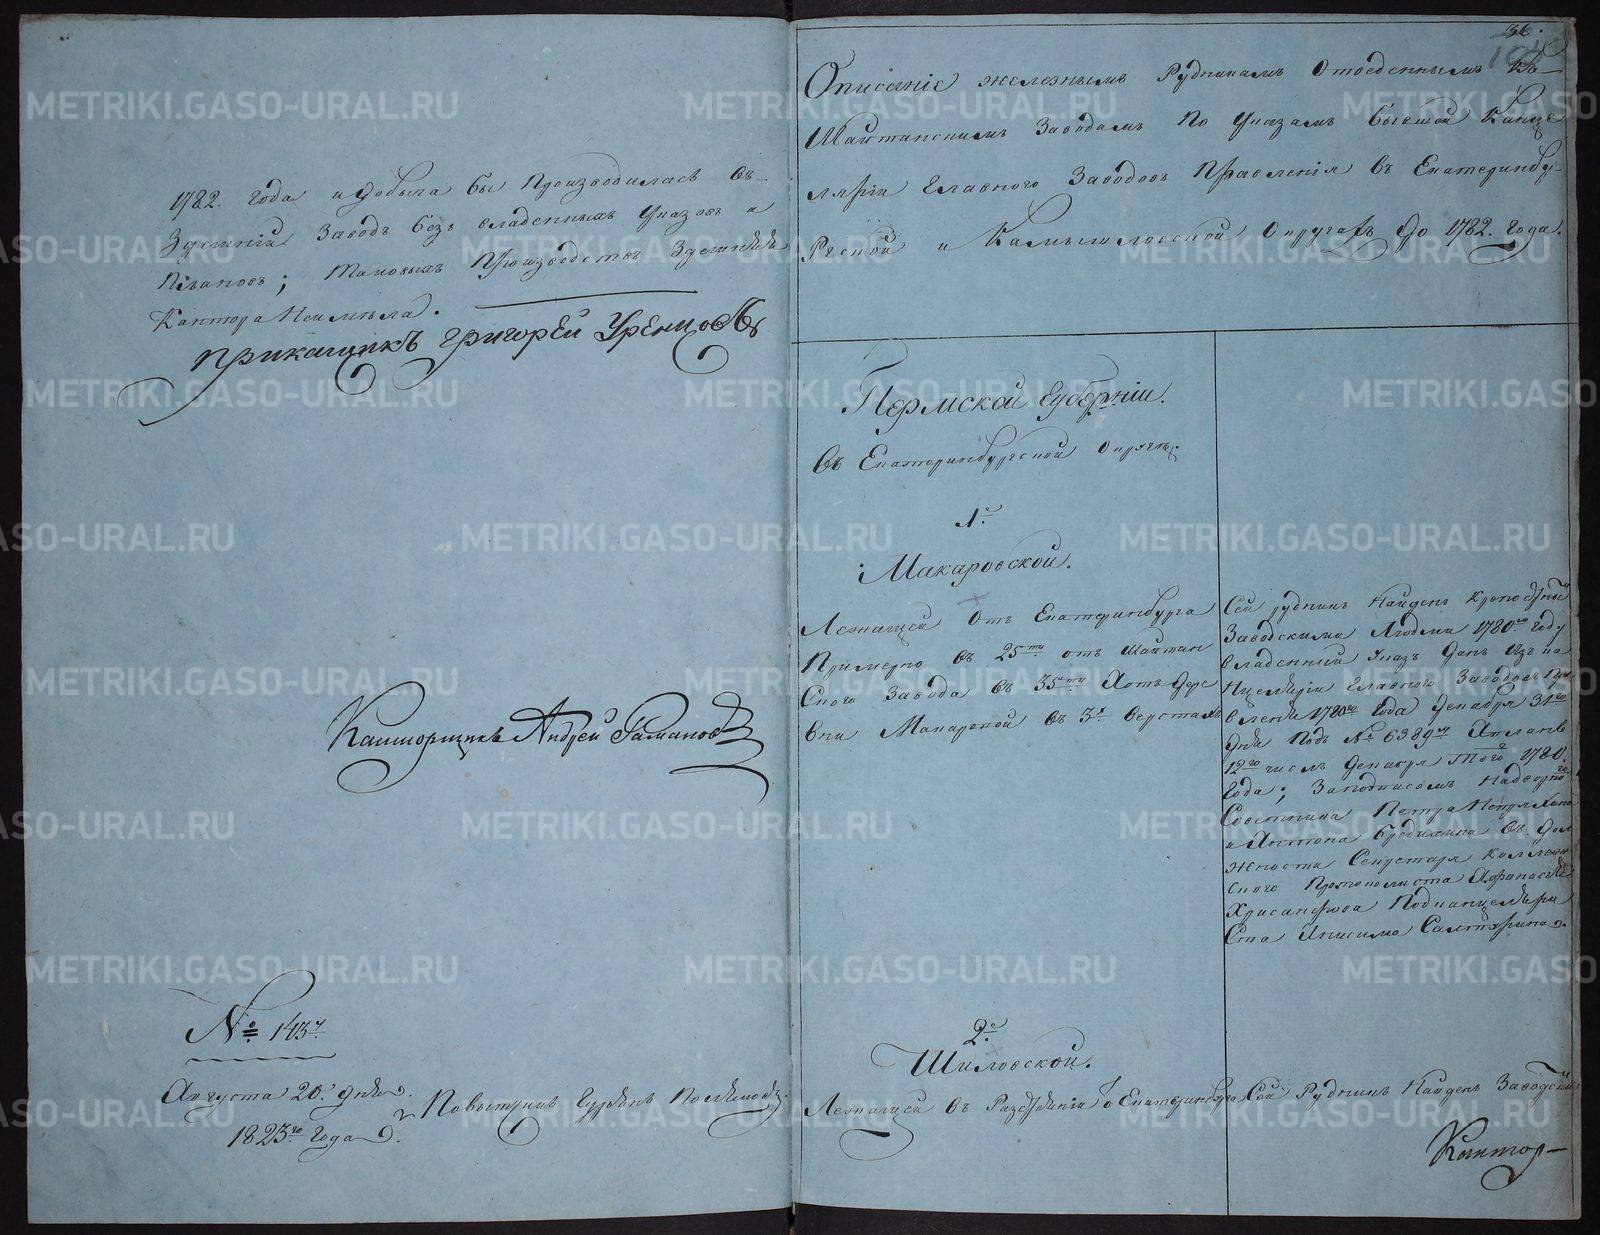 1782. года и добыча бы производилась въ
Здешній заводъ безъ владенныхъ указовъ и
плановъ; таковыхъ производствъ Здешняя
Кантора неимѣла.
прикащикъ григорей Уренцовъ
Канторщикъ Андрей Рамановъ
№ 1437
Августа 20. дня
1823го года
Повытчикъ
36.
Описаніе железнымъ Рудникамъ отведеннымъ къ
Шайтанскимъ Заводамъ по указамъ бывшей Канце
ляріи Главного Заводовъ Правленія въ Екатеринбу-
ргской и Камышловской округахъ до 1782. года.
Пермской Губерніи.
въ Екатеринбургской округѣ.
1е
Макаровской.
Лежащей отъ Екатеринбурга
Примерно въ 25ти отъ Шайтан
ского завода въ 35ти А отъ дере
вни Макаровой въ 3х верстахъ
Сей рудникъ найденъ крепостными
Заводскими людми 1780го году
владенный указъ данъ изъ ка
нцелярій Главного Заводовъ пра
вленія 1780го года декабря 31го
дня подъ № 6389м А планъ
12го числъ декабря того 1780.
года; Заподписомъ надворного
Советника Петра
и Антона Бредихина въ дол
жности Секретаря коллежс
ского протоколиста Афанасья
Хрисанфова Подканцеляри
ста Анисима
2е
Шиловской.
Лежащей въ Разстояніи отъ Екатеринбурга
Сей Рудникъ найденъ Заводскими
Кантор-
METRIKI.GASO-URAL.RU